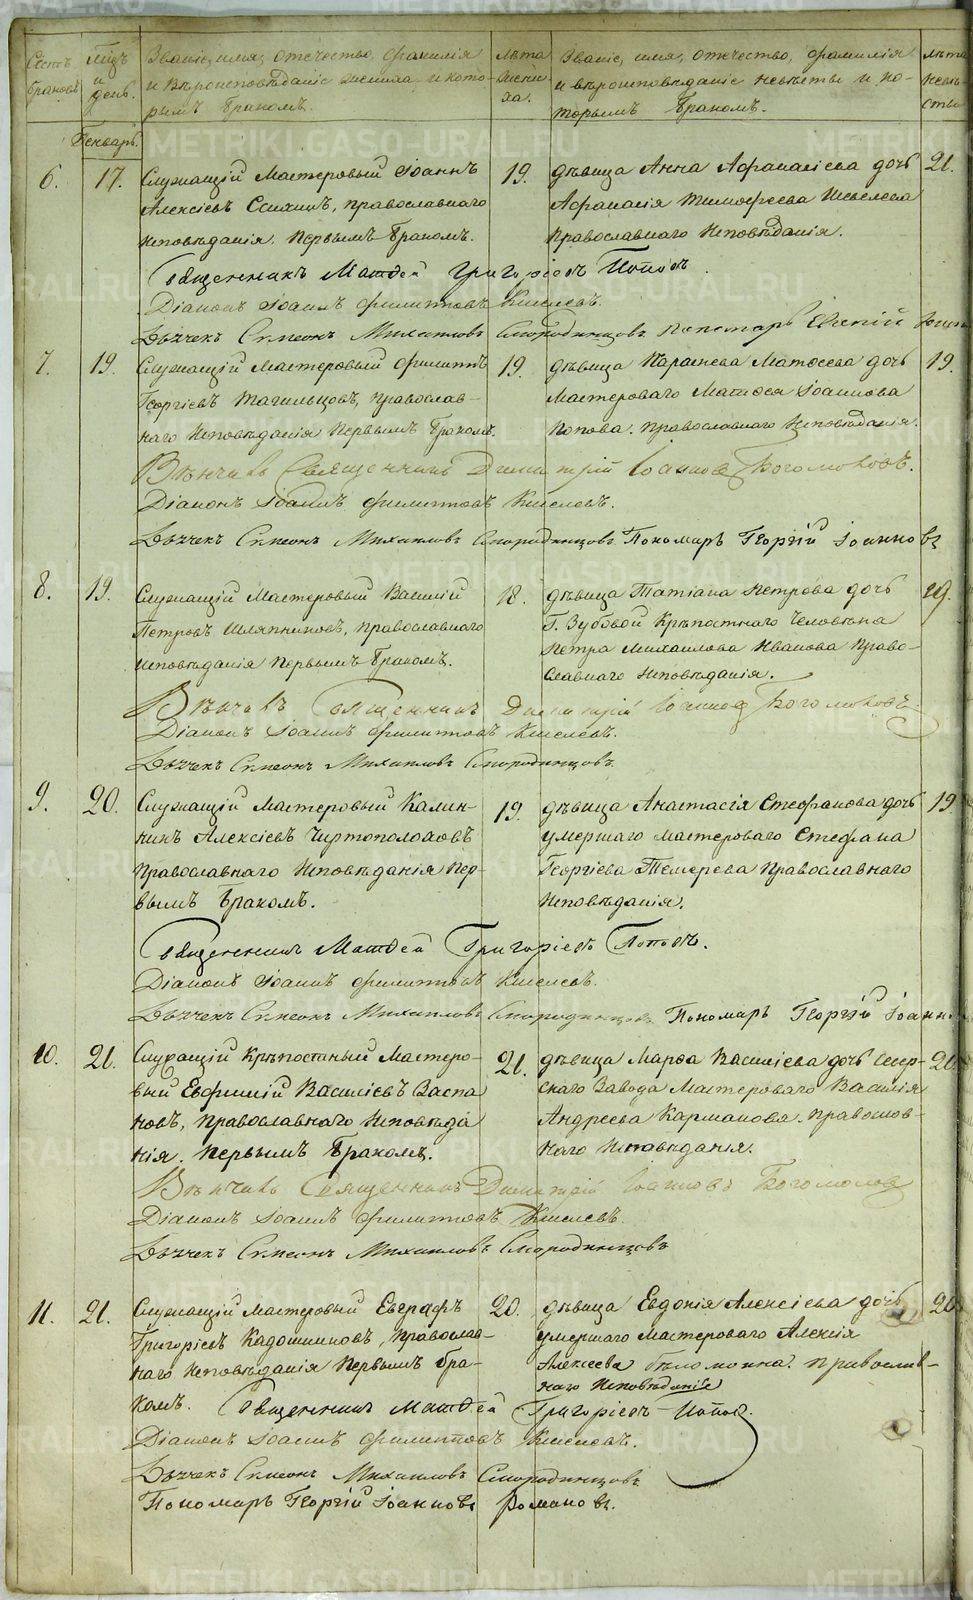 Счетъ браковъ
Мѣцъ и день.
Званіе, имя, отечество, фамилія
и вѣроисповѣданіе жениха и кото-
рымъ бракомъ.
Лѣта жени-
ха.
Званіе, имя, отечество, фамилія
и вѣроисповѣданіе невѣсты и ко-
торымъ бракомъ.
Лѣта
невѣ-
сты
Генварь.
6. 17. Служащій мастеровый Іоаннъ
Алексіевъ, православнаго
исповѣданія. Первымъ бракомъ.
19.
дѣвица Анна Афанасіева дочь
Афанасія Тимофеева Шевелева
православнаго исповѣданія.
21.
Священникъ Матфей Григоріевъ Поповъ.
Діаконъ Іоаннъ Филипповъ Киселевъ.
Дьячекъ Симеонъ Михаиловъ Смородинцовъ. Пономарь Евгеній
7. 19. Служащій мастеровый Филиппъ
Георгіевъ Тагильцовъ, православ-
наго исповѣданія первымъ бракомъ.
19.
дѣвица Параскева Матфеева дочь
мастероваго Матфея Іоаннова
Попова. православнаго исповѣданія.
19.
Вѣнчалъ Священникъ Димитрій Іоанновъ Богомоловъ.
Діаконъ Іоаннъ Филипповъ Киселевъ.
Дьячекъ Симеонъ Михаиловъ Смородинцовъ Пономарь Георгій Іоанновъ
8. 19. Служащій мастеровый Василій
Петровъ Шляпниковъ, православнаго
исповѣданія первымъ бракомъ.
18.
дѣвица Татіана Петрова дочь
Г. Зубовой крѣпостнаго человѣка
Петра Михаилова Иванова право-
славнаго исповѣданія.
19.
Вѣнчалъ Священникъ Димитрій Іоанновъ Богомоловъ
Діаконъ Іоаннъ Филипповъ Киселевъ.
Дьячекъ Симеонъ Михаиловъ Смородинцовъ.
9. 20. Служащій мастеровый Калин-
никъ Алексіевъ Чертополоховъ
православнаго исповѣданія пер-
вымъ бракомъ.
19.
дѣвица Анастасія Стефанова дочь
умершаго мастероваго Стефана
Георгіева Темерева православнаго
исповѣданія.
19.
Священникъ Матфей Григоріевъ Поповъ.
Діаконъ Іоаннъ Филипповъ Киселевъ.
Дьячекъ Симеонъ Михаиловъ Смородинцовъ Пономарь Георгій Іоанно
10. 21. Служащій крѣпостный мастеро-
вый Евфимій Василіевъ Заспа
новъ, православнаго исповѣда
нія. Первымъ бракомъ.
21.
дѣвица Марфа Василіева дочь Сысер-
скаго завода мастероваго Василія
Андреева Карманова. православ-
наго исповѣданія.
20.
Вѣнчалъ Священникъ Димитрій Іоанновъ Богомоловъ
Діаконъ Іоаннъ Филипповъ Киселевъ.
Дьячекъ Симеонъ Михаиловъ Смородинцовъ
11. 21. Служащій мастеровый Евграфъ
Григоріевъ Кадошниковъ, православ-
наго исповѣданія первымъ бра-
комъ.
20.
дѣвица Евдокія Алексіева дочь
умершаго мастероваго Алексія
Алексеева. православ-
наго исповѣданія
20
Священникъ Матфей Григоріевъ Поповъ.
Діаконъ Іоаннъ Филипповъ Киселевъ.
Дьячекъ Симеонъ Михаиловъ Смородинцовъ.
Пономарь Георгій Іоанновъ Романовъ.
METRIKI.GASO-URAL.RU